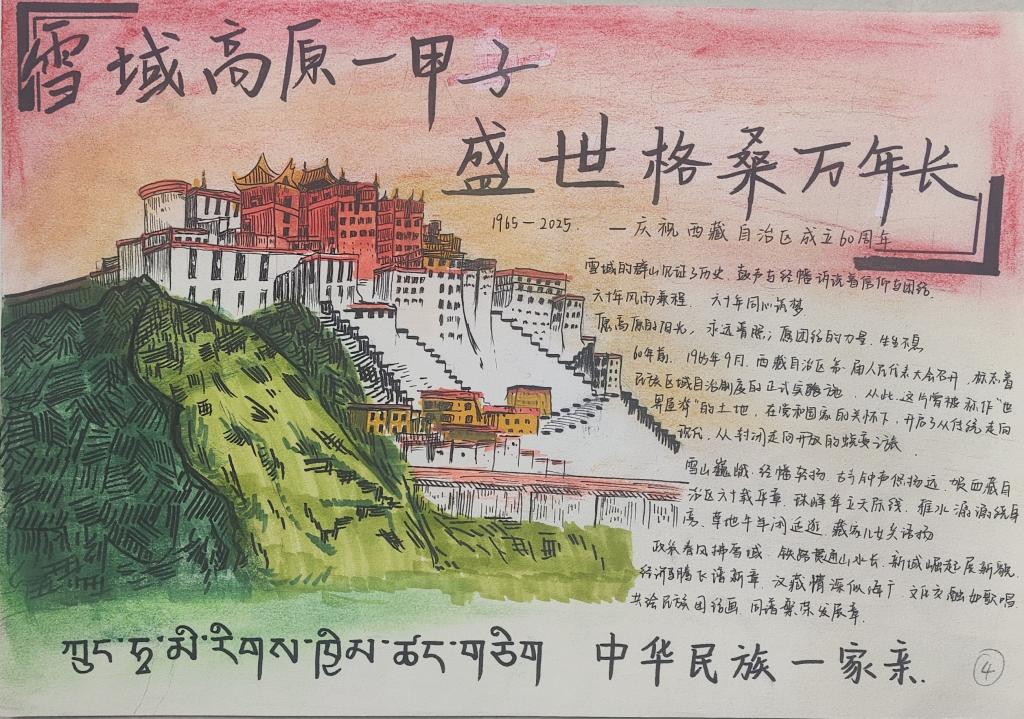 雪域高原一甲子
盛世格桑万年长
1965—2025
—庆祝西藏自治区成立60周年
雪域的群山见证了历史，鼓声与经幡诉说着信仰与团结.
六十年风雨兼程. 六十年同心筑梦
愿高原的阳光，永远普照；愿团结的力量，生生不息
60年前. 1965年9月. 西藏自治区第一届人民代表大会召开，标志着
民族区域自治制度的正式实施. 从此，这片常被称作“世
界屋脊”的土地，在党和国家的关怀下，开启了从传统走向
现代，从封闭走向开放的蜕变之旅
雪山巍峨，经幡轻扬. 古寺钟声传扬远. 贺西藏自
治区六十载华章. 珠峰耸立天际线. 雅水潺潺绕身
旁. 草地牛羊闲逛逛. 藏家儿女笑语扬
政策春风拂雪域. 铁路贯通山水长. 新城崛起展新貌.
经济腾飞谱新章. 汉藏情深似海广. 文化交融如歌唱.
共绘民族团结画. 同谱繁荣发展章.
ཀྲུང་ཧྭ་མི་རིགས་ཁྱིམ་ཚང་གཅིག
中华民族一家亲.
④